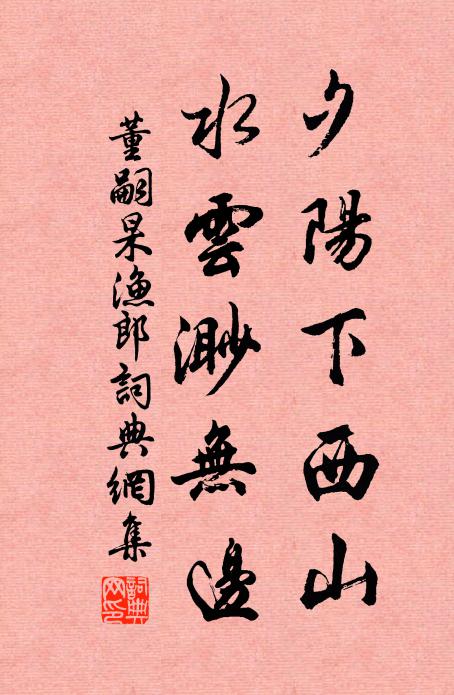 夕陽下西山
水雲渺無邊
董嗣杲漁郎詞典網集
詞典網印